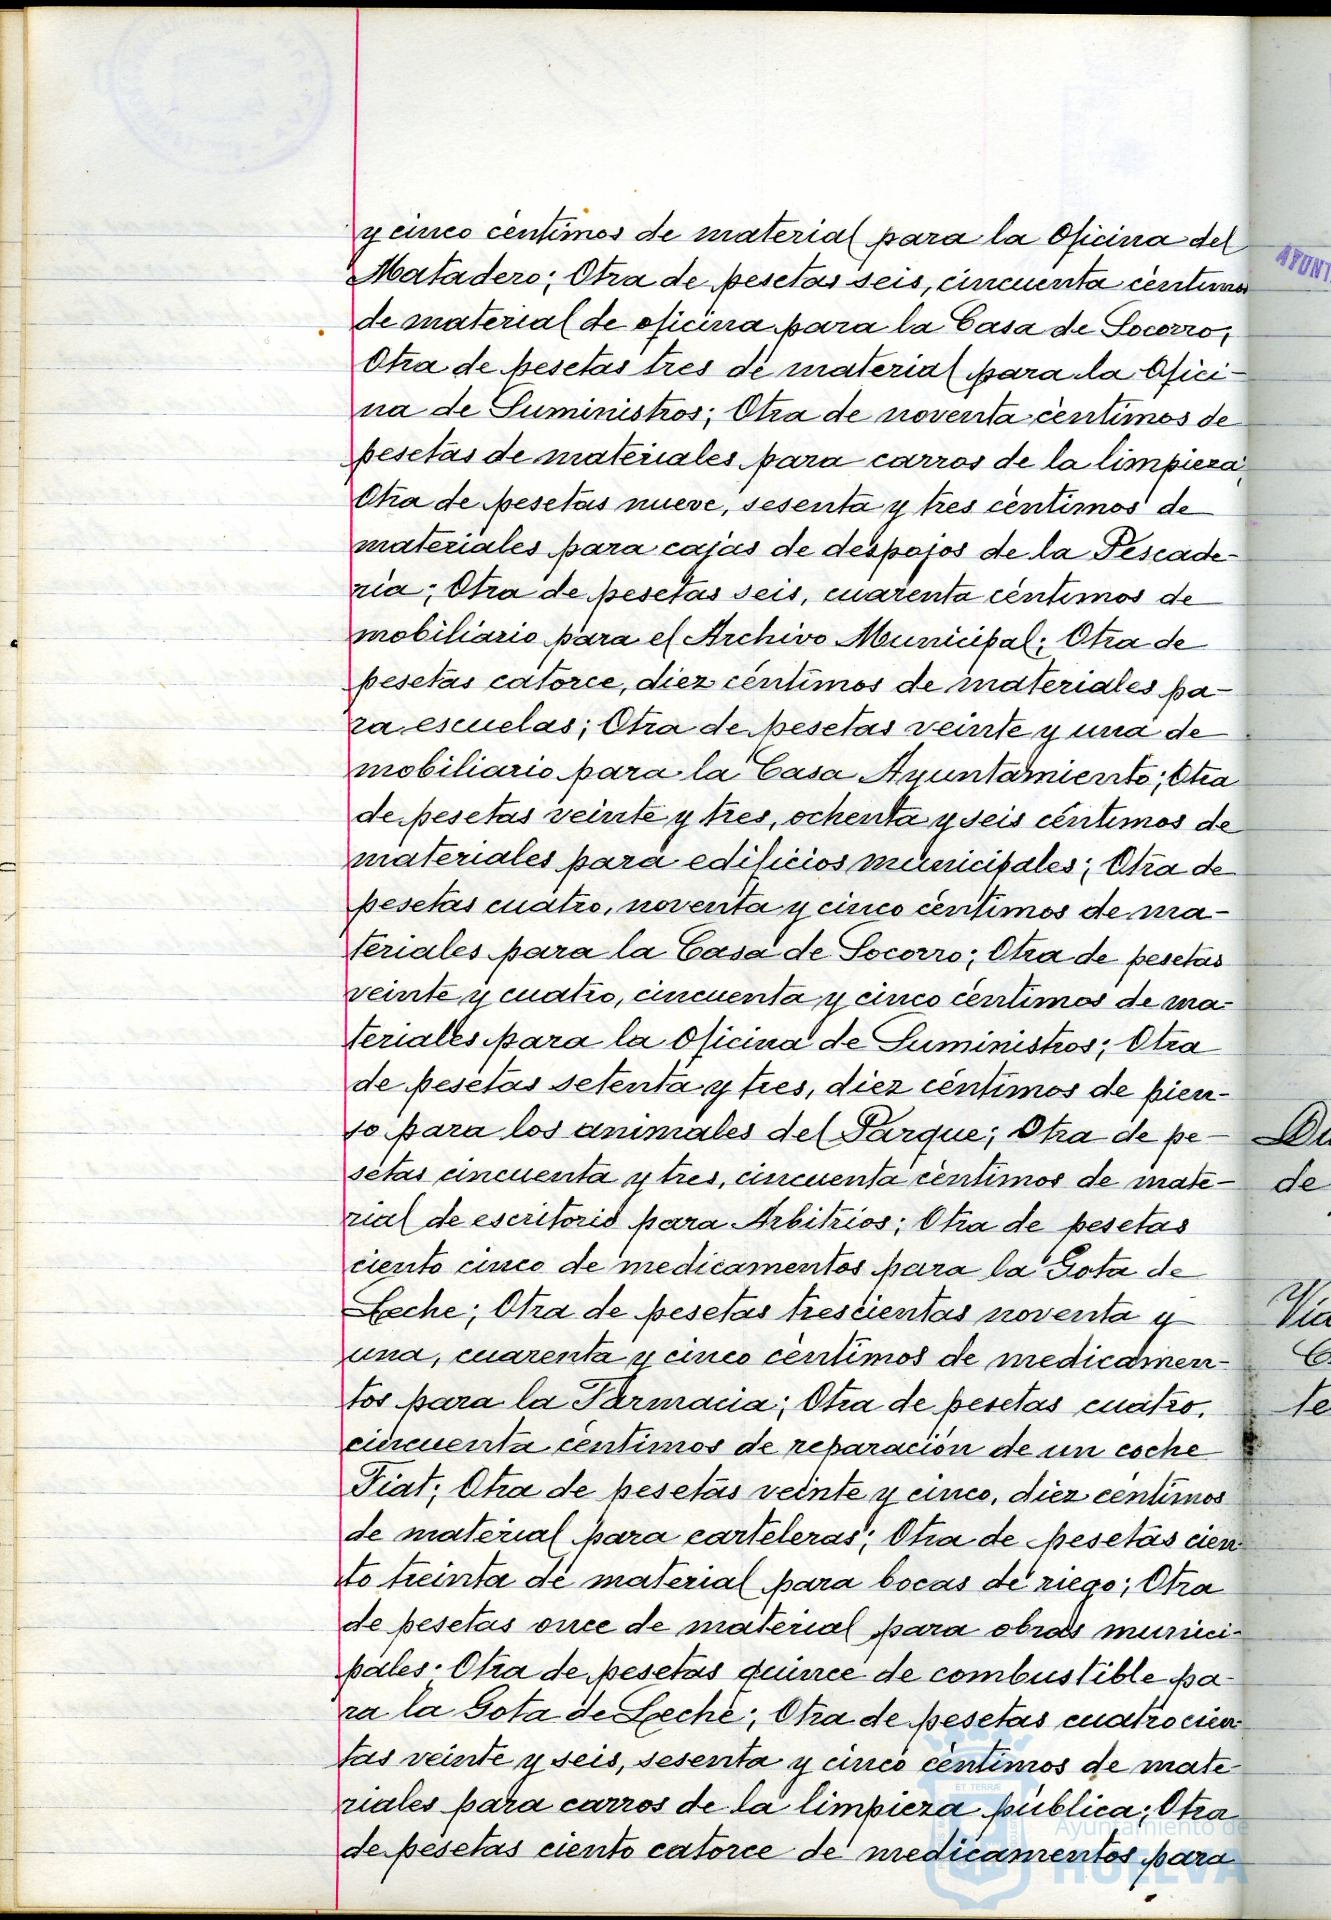 y cinco céntimos de material para la Oficina del
Matadero; Otra de pesetas seis, cincuenta céntimos
de material de oficina para la Casa de Socorro;
Otra de pesetas tres de material para la Ofici-
na de Suministros; Otra de noventa céntimos de
pesetas de materiales para carros de la limpieza;
Otra de pesetas nueve, sesenta y tres céntimos de
materiales para cajas de despojos de la Pescade-
ría; Otra de pesetas seis, cuarenta céntimos de
mobiliario para el Archivo Municipal; Otra de
pesetas catorce, diez céntimos de materiales pa-
ra escuelas; Otra de pesetas veinte y una de
mobiliario para la Casa Ayuntamiento; Otra
de pesetas veinte y tres, ochenta y seis céntimos de
materiales para edificios municipales; Otra de
pesetas cuatro, noventa y cinco céntimos de ma-
teriales para la Casa de Socorro; Otra de pesetas
veinte y cuatro, cincuenta y cinco céntimos de ma-
teriales para la Oficina de Suministros; Otra
de pesetas setenta y tres, diez céntimos de pien-
so para los animales del Parque; Otra de pe-
setas cincuenta y tres, cincuenta céntimos de mate-
rial de escritorio para Arbitrios; Otra de pesetas
ciento cinco de medicamentos para la Gota de
Leche; Otra de pesetas trescientas noventa y
una, cuarenta y cinco céntimos de medicamen-
tos para la Farmacia; Otra de pesetas cuatro,
cincuenta céntimos de reparación de un coche
Fiat; Otra de pesetas veinte y cinco, diez céntimos
de material para carteleras; Otra de pesetas cien-
to treinta de material para bocas de riego; Otra
de pesetas once de material para obras munici-
pales. Otra de pesetas quince de combustible pa-
ra la Gota de Leche; Otra de pesetas cuatrocien-
tas veinte y seis, sesenta y cinco céntimos de mate-
riales para carros de la limpieza pública; Otra
de pesetas ciento catorce de medicamentos para
Ayuntamiento de
HUELVA